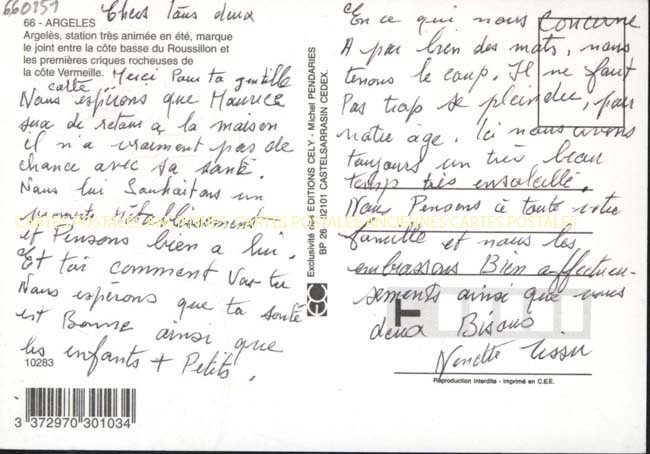 660251
Chers Tous deux
66 - ARGELES
Argelès, station très animée en été, marque
le joint entre la côte basse du Roussillon et
les premières criques rocheuses de
la côte Vermeille.
Merci Pour ta gentille
carte
Nous espérons que Maurice
sera de retour a la maison
il n'a vraiment pas de
chance avec sa santé.
Nous lui Souhaitons un
prompt rétablissement
et Pensons bien a lui.
Et toi comment Vas-tu
Nous espérons que ta santé
est Bonne ainsi que
les enfants + Petits.
10283
3 372970 301034
Exclusivité des EDITIONS CELY - Michel PENDARIES
BP 26 - 82101 CASTELSARRASIN CEDEX.
En ce qui nous concerne
A part bien des maux, nous
tenons le coup. Il ne faut
Pas trop se plaindre, pour
notre âge. Ici nous avons
toujours un très beau
temp très ensoleillé.
Nous Pensons à toute votre
famille et nous les
embrassons Bien affectueu-
sements ainsi que vous
deux Bisous
Reproduction Interdite - Imprimé en C.E.E.
CARTES POSTALES ANCIENNES CARTES POSTALES ANCIENNES CARTES POSTALES